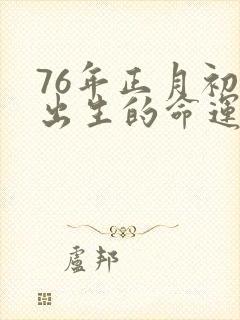 76年正月初
出生的命運
盧邦